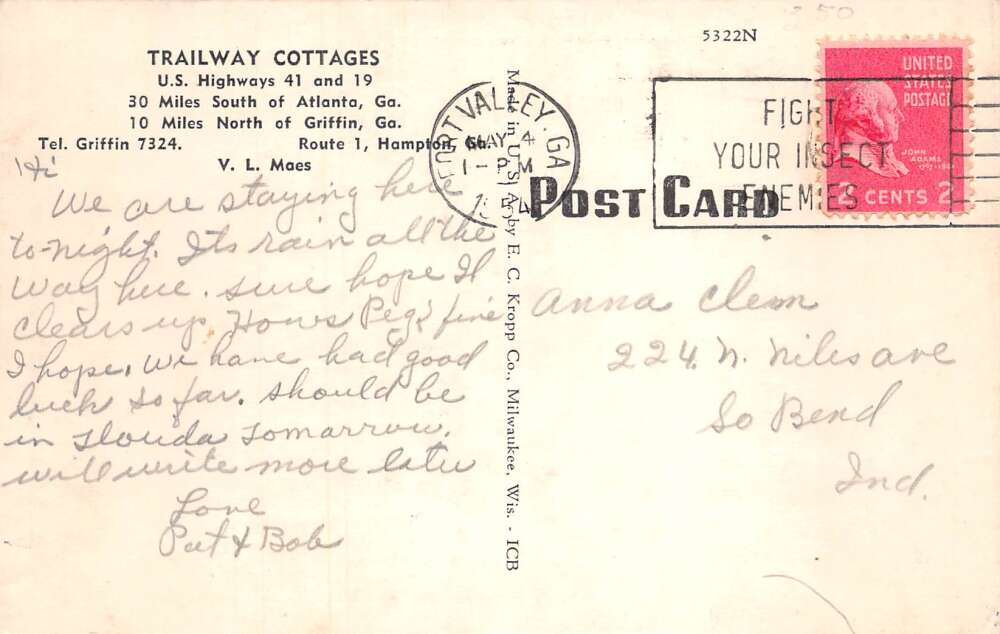 TRAILWAY COTTAGES
U.S. Highways 41 and 19
30 Miles South of Atlanta, Ga.
10 Miles North of Griffin, Ga.
Tel. Griffin 7324. Route 1, Hampton, Ga.
V. L. Maes
Hi
We are staying here
to-night. Its rain all the
way here. sure hope It
clears up Hows Peg? fine
I hope. We have had good
luck so far. should be
in Florida Tomarrow.
will write more later
Love
Pat & Bob
Made in U.S.A. by E. C. Kropp Co., Milwaukee, Wis. - ICB
5322N
350
FORT VALLEY, GA
MAY 4
1 - PM
POST CARD
FIGHT
YOUR INSECT
ENEMIES
UNITED
STATES
POSTAGE
JOHN
ADAMS
2 CENTS 2
Anna Clem
224. N. Niles ave
So Bend
Ind.